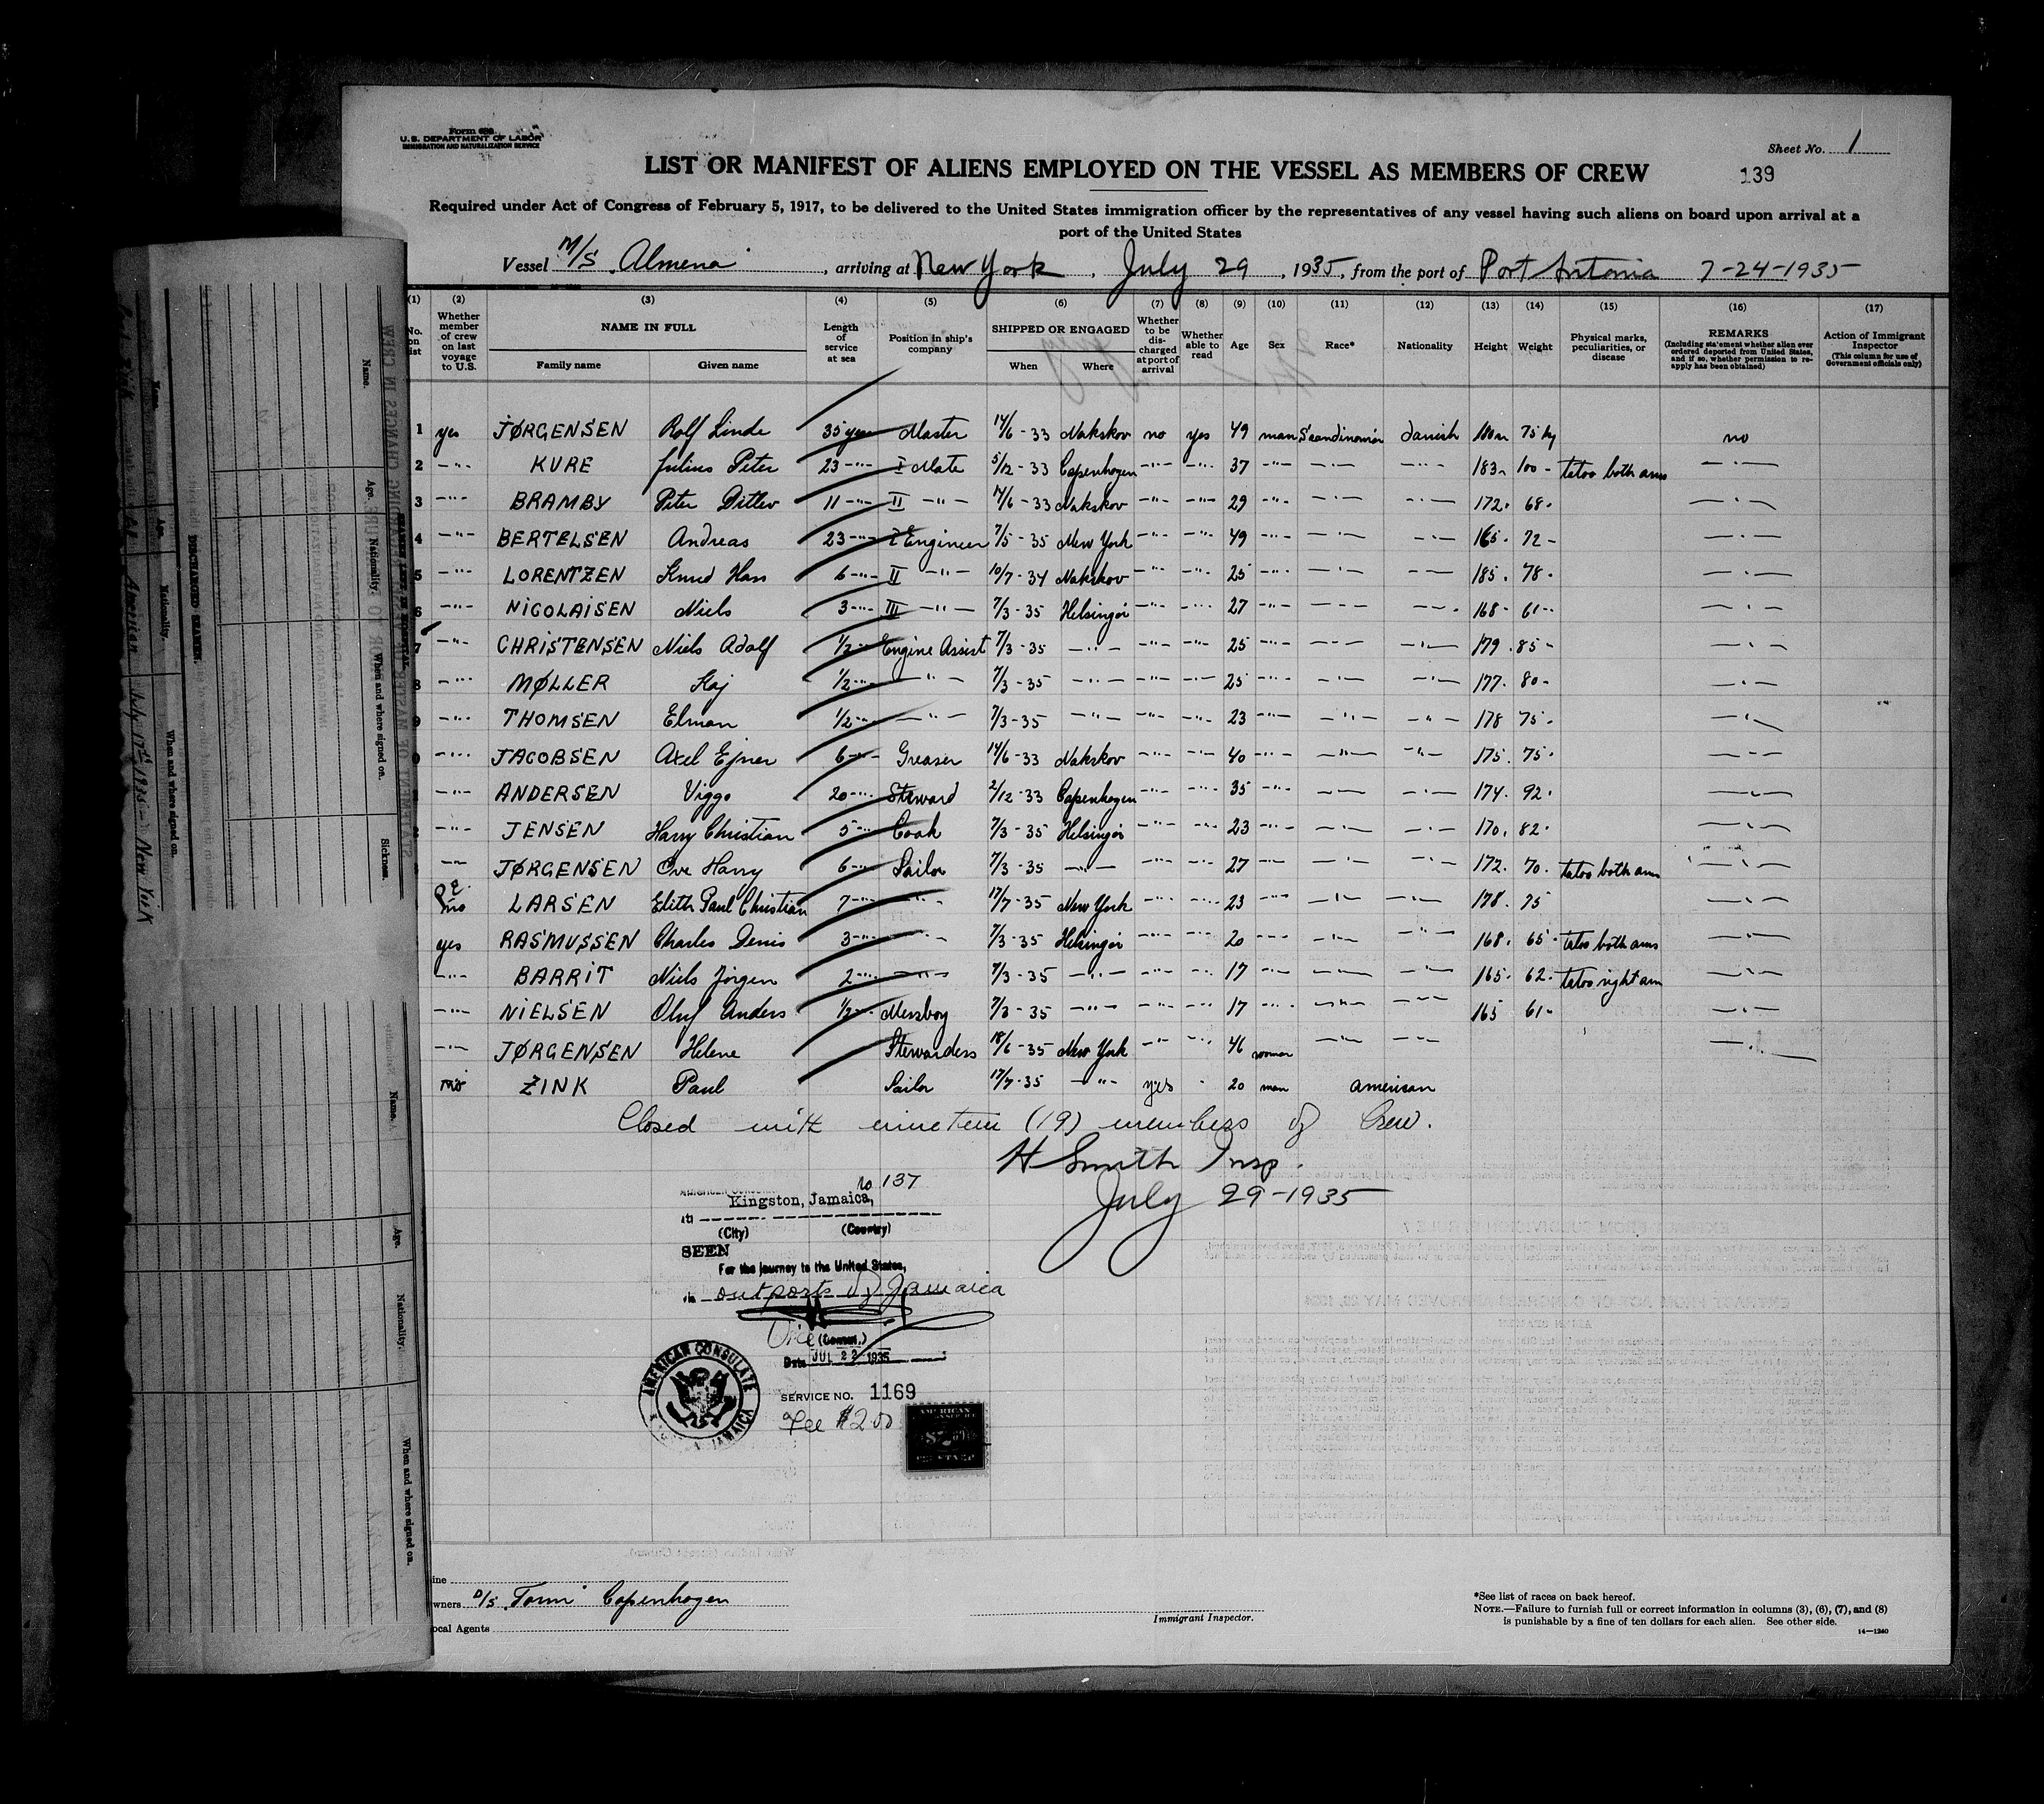 Form 689
U.S. DEPARTMENT OF LABOR
IMMIGRATION AND NATURALIZATION SERVICE
Sheet No. 1
LIST OR MANIFEST OF ALIENS EMPLOYED ON THE VESSEL AS MEMBERS OF CREW
139
Required under Act of Congress of February 5, 1917, to be delivered to the United States immigration officer by the representatives of any vessel having such aliens on board upon arrival at a
port of the United States
Vessel M/S Almena, arriving at New York, July 29, 1935, from the port of Port Antonia 7-24-1935
(1) (2) (3) (4) (5) (6) (7) (8) (9) (10) (11) (12) (13) (14) (15) (16) (17)
No. on list
Whether member of crew on last voyage to U.S.
NAME IN FULL
Family name Given name
Length of service at sea
Position in ship's company
SHIPPED OR ENGAGED
When Where
Whether to be discharged at port of arrival
Whether able to read
Age
Sex
Race*
Nationality
Height
Weight
Physical marks, peculiarities, or disease
REMARKS
(Including statement whether alien ever ordered deported from United States, and if so, whether permission to reapply has been obtained)
Action of Immigrant Inspector
(This column for use of Government officials only)
1 yes JØRGENSEN Rolf Linde 35 years Master 14/6-33 Nakskov no yes 49 man Scandinavian danish 75 kg no
2 -"- KURE Julius Peter 23 -"- I Mate 5/12-33 Copenhagen -"- -"- 37 -"- -"- -"- 183 100 - tatoo both arms -"-
3 -"- BRAMBY Peter Ditlev 11 -"- II -"- 14/6-33 Nakskov -"- -"- 29 -"- -"- -"- 172 68 -"-
4 -"- BERTELSEN Andreas 23 -"- I Engineer 7/5-35 New York -"- -"- 49 -"- -"- -"- 165 72 - -"-
5 -"- LORENTZEN Knud Han 6 -"- II -"- 10/7-34 Nakskov -"- -"- 25 -"- -"- -"- 185 78 -"-
6 -"- NICOLAISEN Niels 3 -"- III -"- 7/3-35 Helsingør -"- -"- 27 -"- -"- -"- 168 61 -"-
7 -"- CHRISTENSEN Niels Adolf 1/2 -"- Engine Assist 7/3-35 -"- -"- -"- 25 -"- -"- -"- 179 85 - -"-
8 -"- MØLLER Kaj 1/2 -"- -"- 7/3-35 -"- -"- -"- 25 -"- -"- -"- 177 80 - -"-
9 -"- THOMSEN Elman 1/2 -"- -"- 7/3-35 -"- -"- -"- 23 -"- -"- -"- 178 75 -"-
0 -"- JACOBSEN Axel Ejner 6 -"- Greaser 14/6-33 Nakskov -"- -"- 40 -"- -"- -"- 175 75 -"-
-"- ANDERSEN Viggo 20 -"- Steward 2/12-33 Copenhagen -"- -"- 35 -"- -"- -"- 174 92 -"-
-"- JENSEN Harry Christian 5 -"- Cook 7/3-35 Helsingør -"- -"- 23 -"- -"- -"- 170 82 -"-
-"- JØRGENSEN Ove Harry 6 -"- Sailor 7/3-35 -"- -"- -"- 27 -"- -"- -"- 172 70 tatoo both arms -"-
no LARSEN Elith Paul Christian 7 -"- -"- 17/7-35 New York -"- -"- 23 -"- -"- -"- 178 75 -"-
yes RASMUSSEN Charles Denis 3 -"- -"- 7/3-35 Helsingør -"- -"- 20 -"- -"- -"- 168 65 tatoo both arms -"-
-"- BARRIT Niels Jörgen 2 -"- -"- 7/3-35 -"- -"- -"- 17 -"- -"- -"- 165 62 tatoo right arm -"-
-"- NIELSEN Oluf Anders 1/2 -"- Messboy 7/3-35 -"- -"- -"- 17 -"- -"- -"- 165 61 - -"-
-"- JØRGENSEN Helene Stewardess 18/6-35 New York -"- -"- 46 woman -"- -"- -"-
no ZINK Paul Sailor 17/7-35 -"- yes 20 man american
Closed with nineteen (19) members of Crew.
H Smith Insp.
July 29-1935
No 137
Kingston, Jamaica,
(City) (Country)
SEEN
For the journey to the United States,
via outports of Jamaica
Vice (Consul.)
Date JUL 22 1935
AMERICAN CONSULATE JAMAICA
SERVICE NO. 1169
Fee $2.00
AMERICAN
FEE STAMP
Owners D/S "Torm" Copenhagen
Local Agents
Immigrant Inspector.
*See list of races on back hereof.
NOTE.—Failure to furnish full or correct information in columns (3), (6), (7), and (8)
is punishable by a fine of ten dollars for each alien. See other side.
14—1240
DISCHARGED SEAMEN
Name.
Age.
Nationality.
When and where signed on.
Sickness.
American July 17th 1935 - New York